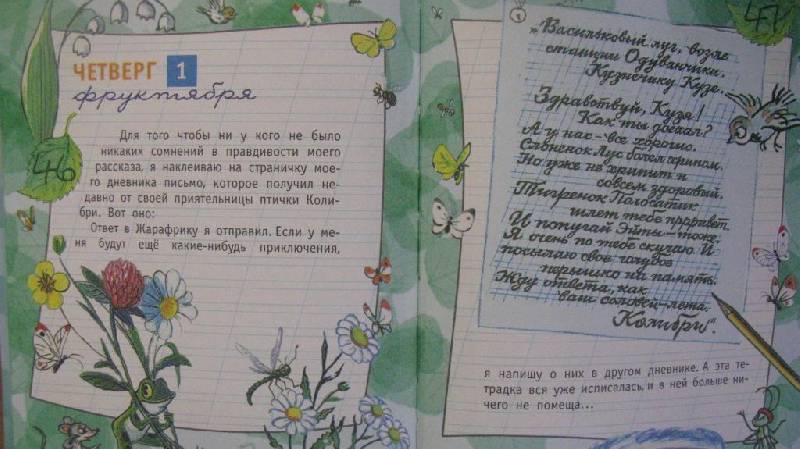 46
ЧЕТВЕРГ 1
фруктября
Для того чтобы ни у кого не было
никаких сомнений в правдивости моего
рассказа, я наклеиваю на страничку мое-
го дневника письмо, которое получил не-
давно от своей приятельницы птички Коли-
бри. Вот оно:
Ответ в Жарафрику я отправил. Если у ме-
ня будут ещё какие-нибудь приключения,
47
„Васильковый луг, возле
станции Одуванчики,
Кузнечику Кузе.
Здравствуй, Кузя!
Как ты доехал?
А у нас – все хорошо.
Слоненок Лус болел гриппом,
Но уже не хрипит и
совсем здоровый.
Тигренок Полосатик
шлет тебе привет.
И попугай Эйты – тоже.
Я очень по тебе скучаю И
посылаю свое голубое
перышко на память.
Жду ответа, как
ваш соловей – лета.
Колибри“.
я напишу о них в другом дневнике. А эта те-
традка вся уже исписалась, и в ней больше ни-
чего не помеща...